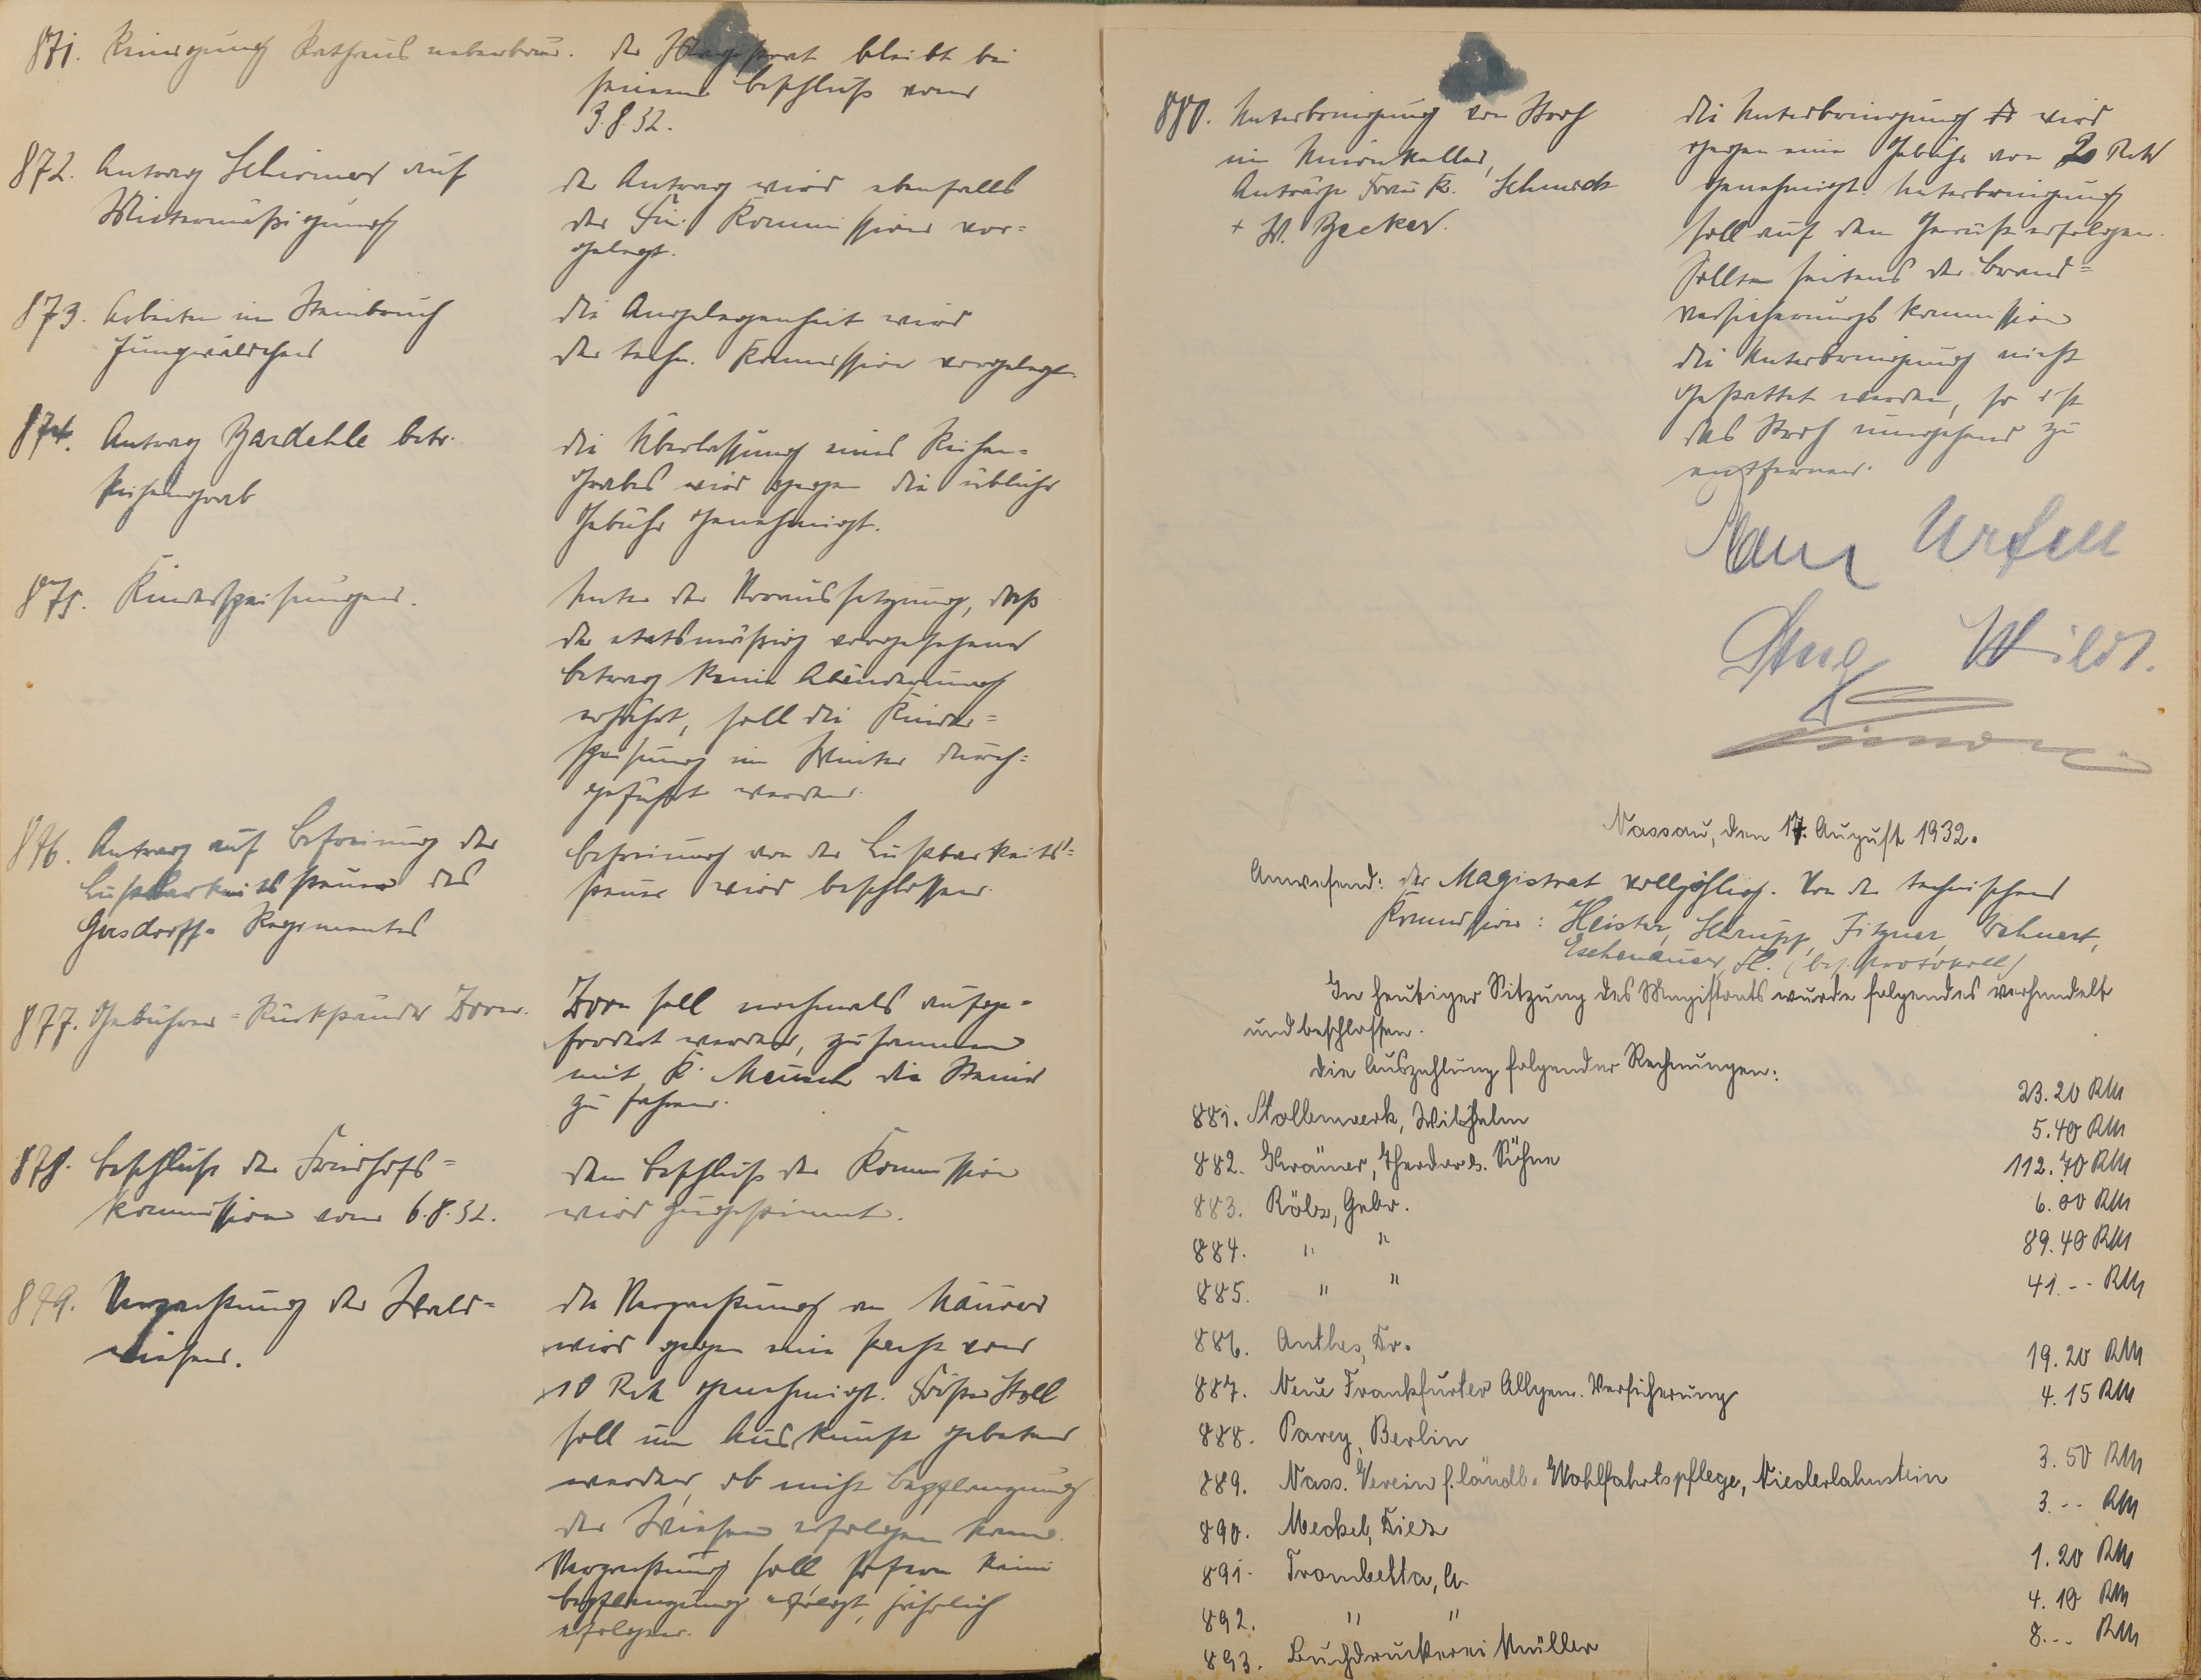 871. Reinigung Rathaus neberbau.
der Magistrat bleibt bei
seinem Beschluß vom
3.8.32.
872. Antrag Schirmer auf
Mietermäßigung
der Antrag wird ebenfalls
der Fin. Kommission vor=
gelegt.
873. Arbeiten im Steinbruch
Jungwäldchen
die Angelegenheit wird
der techn. Kommission vorgelegt.
874. Antrag Bardehle betr.
Reihengrab
die Überlassung eines Reihen=
grabes wird gegen die übliche
Gebühr genehmigt.
875. Kinderspeisungen.
Unter der Voraussetzung, daß
der etatsmäßig vorgesehene
Betrag keine Abänderung
erfährt, soll die Kinder=
speisung im Winter durch=
geführt werden.
876. Antrag auf Befreiung der
Lustbarkeitssteuer des
Gersdorff= Regimentes
Befreiung von der Lustbarkeits=
steuer wird beschlossen.
877. Gebühren=Rückstände Zorn.
Zorn soll nochmals aufge=
fordert werden, zusammen
mit K. Meusch die Steine
zu fahren.
878. Beschluß der Friedhofs=
kommission vom 6.8.32.
dem Beschluß der Kommission
wird zugestimmt.
879. Verpachtung der Wald=
wiesen.
die Verpachtung an Maurer
wird gegen eine Pacht von
10 RM genehmigt. Förster Stoll
soll um Auskunft gebeten
werden, ob nicht Bepflanzung
der Wiesen erfolgen kann.
Verpachtung soll, sofern keine
Bepflanzung erfolgt, jährlich
erfolgen.
880. Unterbringung von Stroh
im Keller,
Anträge Frau K. Schmidt
+ W. Becker.
die Unterbringung wird
gegen eine Gebühr von 20 RM
genehmigt. Unterbringung
soll auf dem Gerüst erfolgen.
Sollte seitens der Brand=
versicherungskommission
die Unterbringung nicht
gestattet werden, so ist
das Stroh umgehend zu
entfernen.
Wild.
Nassau, den 17. August 1932.
Anwesend: der Magistrat vollzählig. Von der technischen
Kommission: Heister, Schrupp, Fitzner, Wehnert,
Eschenauer, H. (bes. Protokoll)
In heutiger Sitzung des Magistrats wurde folgendes verhandelt
und beschlossen.
Die Auszahlung folgender Rechnungen:
881. Stollenwerk, Wilhelm 23.20 RM
882. Krämer, Theodor b. Söhne 5.40 RM
883. Röbr, Gebr. 112.70 RM
884. " " 6.00 RM
885. " " 89.40 RM
886. Anthes, Dr. 41.-- RM
887. Neue Frankfurter Allgem. Versicherung 19.20 RM
888. Parey, Berlin 4.15 RM
889. Nass. Verein f. ländl. Wohlfahrtspflege, Niederlahnstein 3.50 RM
890. Meckel, Diez 3.-- RM
891. Trombetta, A. 1.20 RM
892. " " 4.10 RM
893. Buchdruckerei Müller 8.-- RM